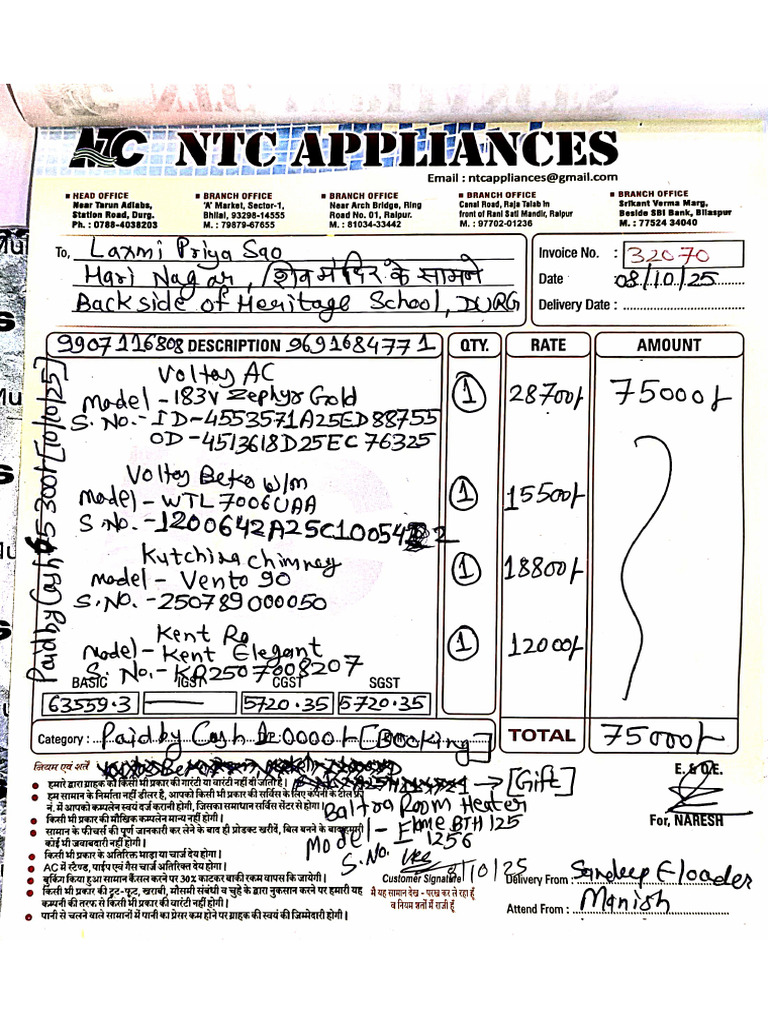 NTC NTC APPLIANCES
Email : ntcappliances@gmail.com
HEAD OFFICE
Near Tarun Adlabs,
Station Road, Durg.
Ph. : 0788-4038203
BRANCH OFFICE
'A' Market, Sector-1,
Bhilai, 93298-14555
M. : 79879-67655
BRANCH OFFICE
Near Arch Bridge, Ring
Road No. 01, Raipur.
M. : 81034-33442
BRANCH OFFICE
Canal Road, Raja Talab in
front of Rani Sati Mandir, Raipur
M. : 97702-01236
BRANCH OFFICE
Srikant Verma Marg,
Beside SBI Bank, Bilaspur
M. : 77524 34040
To, Laxmi Priya Sao
Hari Nagar, शिव मंदिर के सामने
Backside of Heritage School, DURG
Invoice No. : 32070
Date 08/10/25
Delivery Date :
9907116808 DESCRIPTION 9691684771 QTY. RATE AMOUNT
Voltas AC
Model - 183V Zephyr Gold 1 28700/- 75000/-
S. No. - ID-4553571A25ED88755
OD-4513618D25EC76325
Voltas Beko w/m
Model - WTL7006UAA 1 15500/-
S.No. - 1200642A25C10054
Kutchina Chimney
Model - Vento 90 1 18800/-
S.No. - 250789000050
Kent Ro
Model - Kent Elegant 1 12000/-
S. No. - KR2507008207
Paid by Cash 65300/- [10/10/25]
BASIC IGST CGST SGST
63559.3 5720.35 5720.35
Category : Paid by Cash 10000/- [Booking] TOTAL 75000/-
नियम एवं शर्तें
हमारे द्वारा ग्राहक को किसी भी प्रकार की गारंटी या वारंटी नहीं दी जाती है।
हम सामान के निर्माता नहीं डीलर है, अतः आपको किसी भी प्रकार की सर्विस के लिए कंपनी के टोल फ्री
नं. में आपको कम्पलेन स्वयं दर्ज करानी होगी, जिसका समाधान सर्विस सेंटर से होगा।
किसी भी प्रकार की मौखिक कम्पलेन मान्य नहीं होगी।
सामान के फीचर्स की पूर्ण जानकारी कर लेने के बाद ही प्रोडक्ट खरीदें, बिल बनने के बाद हमारी
कोई भी जवाबदारी नहीं होगी।
किसी भी प्रकार के अतिरिक्त भाड़ा या चार्ज देय होगा।
AC में स्टैण्ड, पाईप एवं गैस चार्ज अतिरिक्त देय होगा।
बुकिंग किया हुआ सामान कैंसल करने पर 30% काटकर बाकी रकम वापस कि जायेगी।
किसी भी प्रकार की टूट-फूट, खराबी, मौसमी संबंधी व चुहे के द्वारा नुकसान करने पर हमारी यह
कम्पनी की तरफ से किसी भी प्रकार की वारंटी नहीं होगी।
पानी से चलने वाले सामानों में पानी का प्रेसर कम होने पर ग्राहक की स्वयं की जिम्मेदारी होगी।
→ [Gift]
Baltra Room Heater
Model - Flame BTH 125
S.No. 1256
8/10/25
Customer Signature
मै यह सामान देख - परख कर ले रहा हूँ
व नियम शर्तो में राजी हूँ
E. & O.E.
For, NARESH
Delivery From : Sandeep E loader
Attend From : Manish